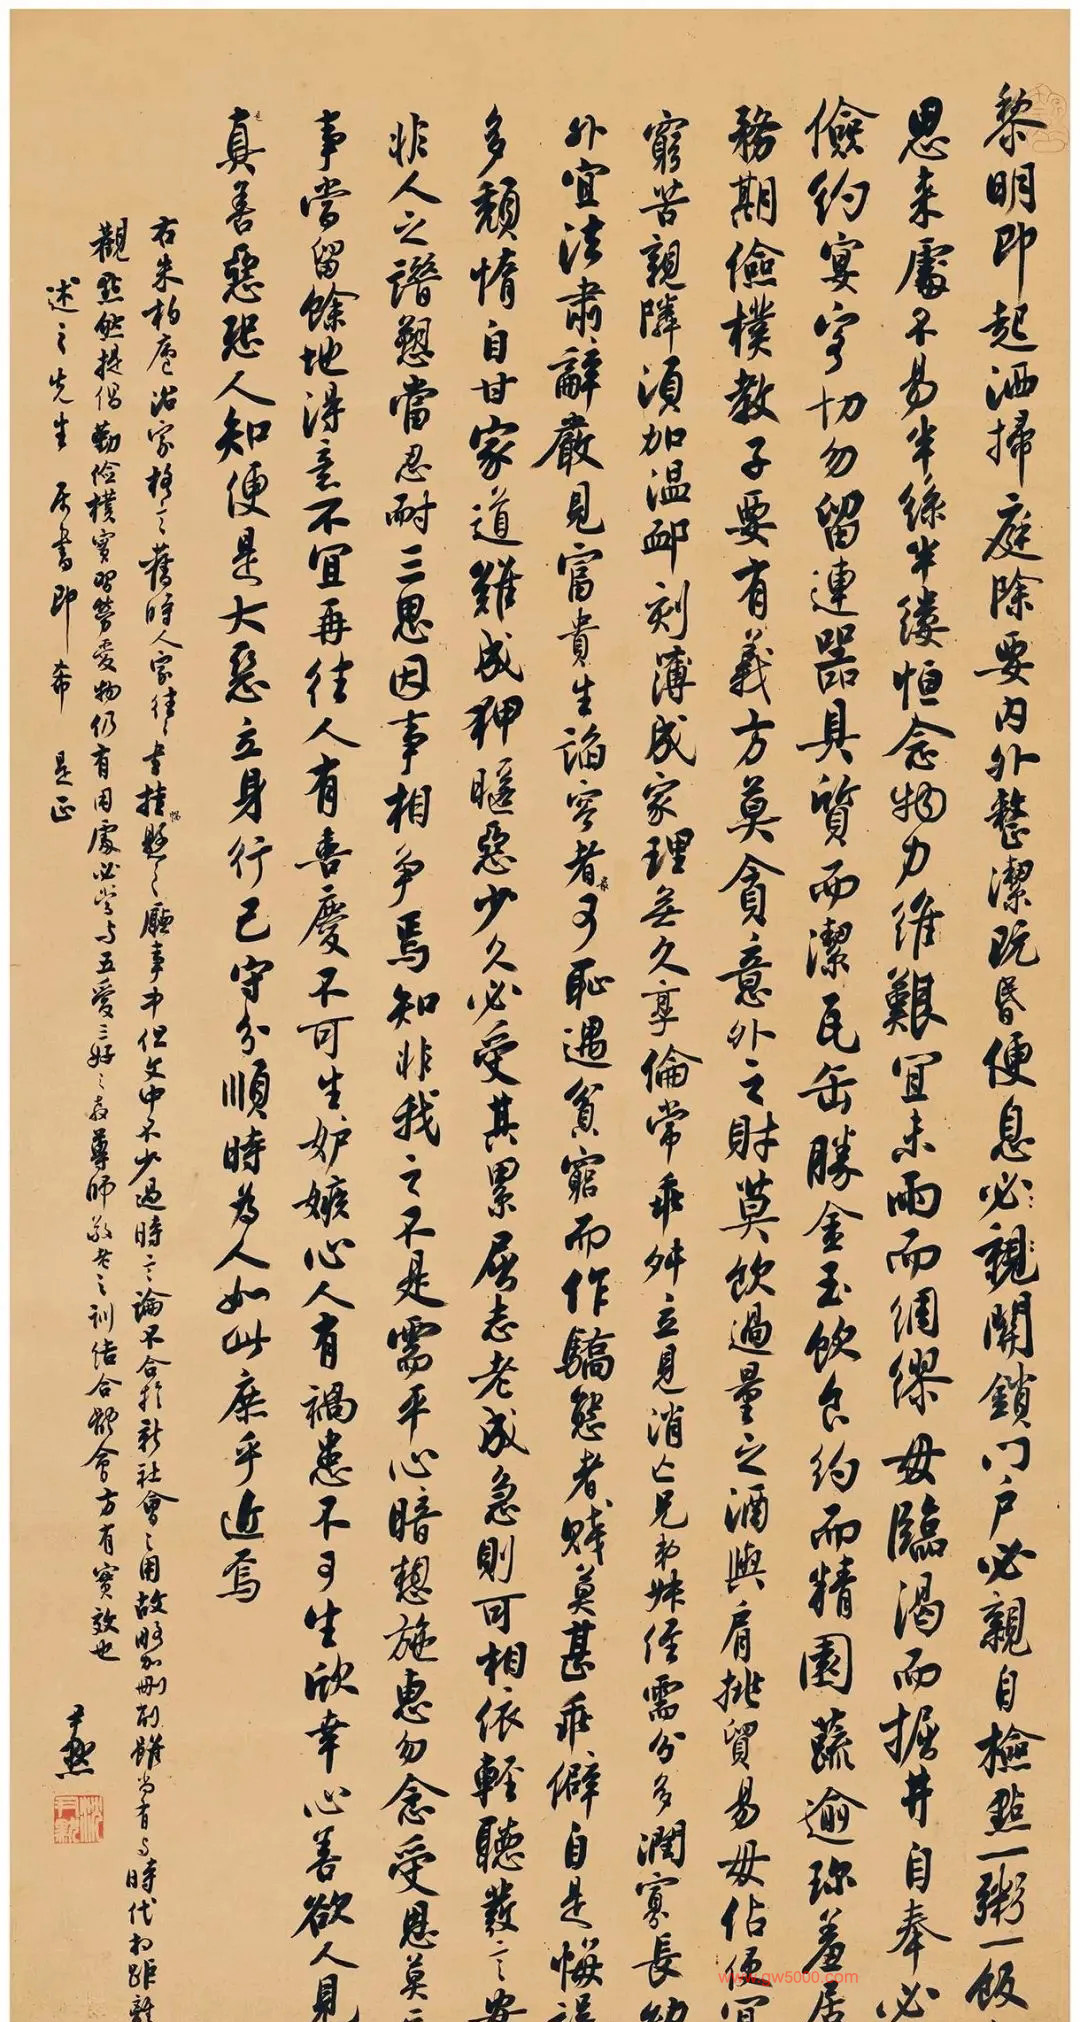 黎明即起洒掃庭除要内外整潔既昏便息必親關鎖门户必親自檢點一粥一飯
思来處不易半絲半縷恒念物力維艱宜未雨而綢繆毋臨渴而掘井自奉必
儉約宴客切勿留連器具質而潔瓦缶勝金玉飲食约而精園蔬逾珍羞居
務期儉樸教子要有義方莫貪意外之財莫飲過量之酒與肩挑貿易毋佔便宜
窮苦親隣須加温卹刻薄成家理無久享倫常乖舛立見消亡兄弟姊侄需分多潤寡長幼
外宜法肅辭嚴見富貴生諂容者最可恥遇貧窮而作驕態者賤莫甚乖僻自是悔誤
多頹惰自甘家道難成狎暱惡少久必受其累屈志老成急則可相依輕聽發言安
非人之譖愬當忍耐三思因事相争焉知非我之不是需平心暗想施惠勿念受恩莫
事當留餘地得意不宜再往人有喜慶不可生妒嫉心人有禍患不可生欣幸心善欲人見
真善惡恐人知便是大惡立身行己守分順時為人如此庶乎近焉
右朱柏廬治家格言舊時人家往往書挂懸之廳事中但文中不少過時言論不合於新社會之用故略加删削雖尚有与時代相距離
觀點然提倡勤儉樸實習勞愛物仍有用處必嘗与五愛三好之教尊師敬老之訓结合體會方有實效也
述之先生 屬書即希 是正
尹默
沈尹默
www.gw5000.com